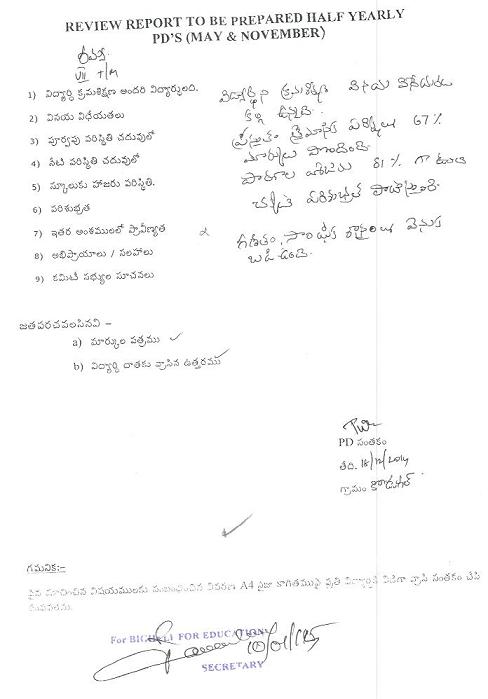 REVIEW REPORT TO BE PREPARED HALF YEARLY
PD'S (MAY & NOVEMBER)
VII T/M
1) విద్యార్థి క్రమశిక్షణ అందరి విద్యార్థులది.
విద్యార్థిని క్రమశిక్షణ వినయ విధేయతలు
2) వినయ విధేయతలు
కల్గి ఉన్నది.
3) పూర్వపు పరిస్థితి చదువులో
ప్రస్తుతం త్రైమాసిక పరీక్షలు 67%
4) నేటి పరిస్థితి చదువులో
మార్కులు పొందింది.
5) స్కూలుకు హాజరు పరిస్థితి.
పాఠశాల హాజరు 81% గా కలదు
6) పరిశుభ్రత
చక్కని పరిశుభ్రత పాటిస్తుంది
7) ఇతర అంశములలో ప్రావీణ్యత
8) అభిప్రాయాలు / సలహాలు
గణితం, సాంఘీక శాస్త్రంలు వెనుక
బడి ఉంది.
9) కమిటీ సభ్యుల సూచనలు
జతపరచవలసినవి –
a) మార్కుల పత్రము ✓
b) విద్యార్థి దాతకు వ్రాసిన ఉత్తరము ✓
PD సంతకం
తేది. 18/12/2014
గ్రామం
గమనిక:–
పైన సూచించిన విషయములకు సంబంధించిన వివరణ A4 సైజు కాగితముపై ప్రతి విద్యార్థికి విడిగా వ్రాసి సంతకం చేసి
పంపవలెను.
For BIGHELP FOR EDUCATION
10/01/15
SECRETARY